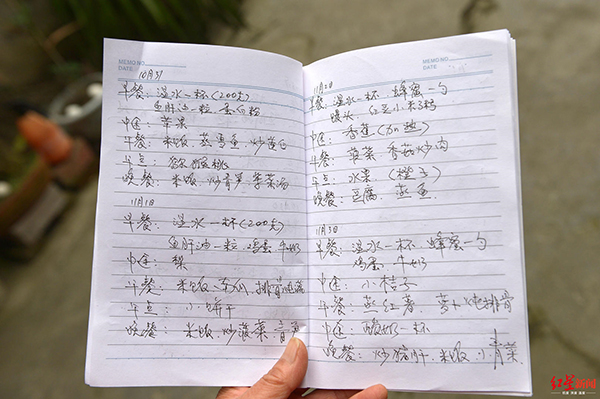 MEMO NO.
DATE
10月31
早餐: 温水一杯(200克)
鱼肝油一粒 蛋白粉
中途: 苹果
午餐: 米饭 蒸鱼 炒
午点: 猕猴桃
晚餐: 米饭 炒青菜 汤
11月1日
早餐: 温水一杯(200克)
鱼肝油一粒 鸡蛋 牛奶
中途: 梨
午餐: 米饭 冬瓜 排骨
午点: 小饼干
晚餐: 米饭 炒菠菜
MEMO NO.
DATE
11月2日
早餐: 温水一杯 蜂蜜一勺
馒头 红豆小米粥
中途: 香蕉
午餐: 菠菜 香菇炒肉
午点: 水果 (橙子)
晚餐: 豆腐 蒸鱼
11月3日
早餐: 温水一杯 蜂蜜一勺
鸡蛋 牛奶
中途: 小桔子
午餐: 蒸红薯 萝卜炖排骨
中途: 酸奶一杯
晚餐: 炒猪肝 米饭 小青菜
红星新闻